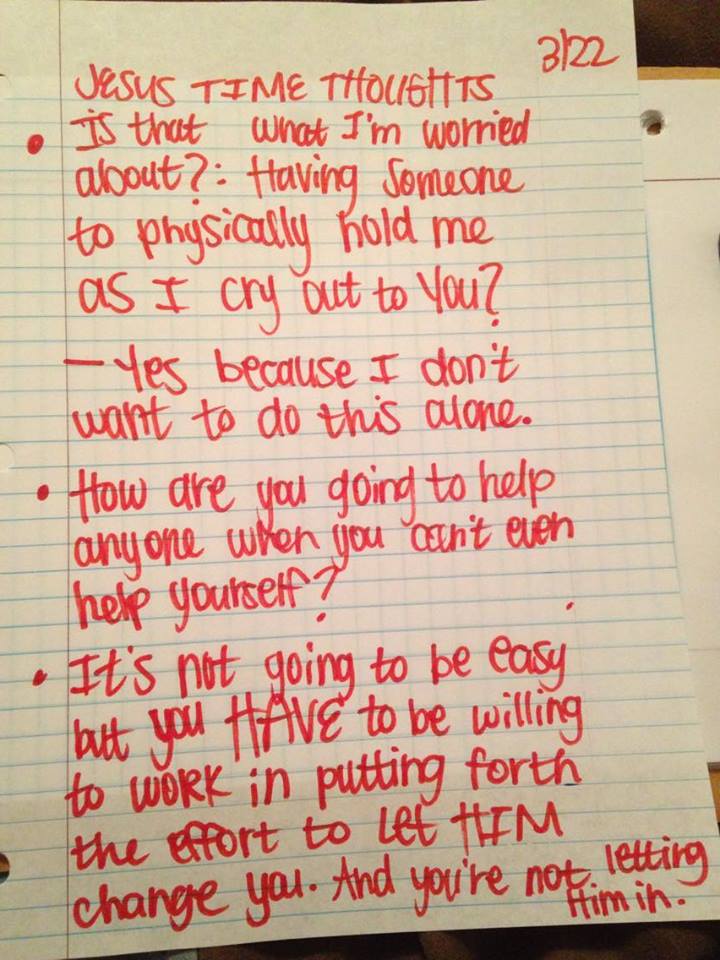 3/22
JESUS TIME THOUGHTS
• Is that what I'm worried
about?: Having someone
to physically hold me
as I cry out to You?
— Yes because I don't
want to do this alone.
• How are you going to help
anyone when you can't even
help yourself?
• It's not going to be easy
but you HAVE to be willing
to WORK in putting forth
the effort to let HIM
change you. And you're not letting
Him in.